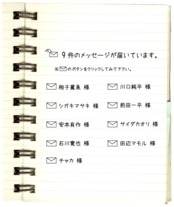 9件のメッセージが届いています。
※ のボタンをクリックしてみて下さい。
相子麗良 様
川口純平 様
シガキマサキ 様
前田一平 様
安本有作 様
サイダカオリ 様
石川寛也 様
田辺マモル 様
チャカ 様